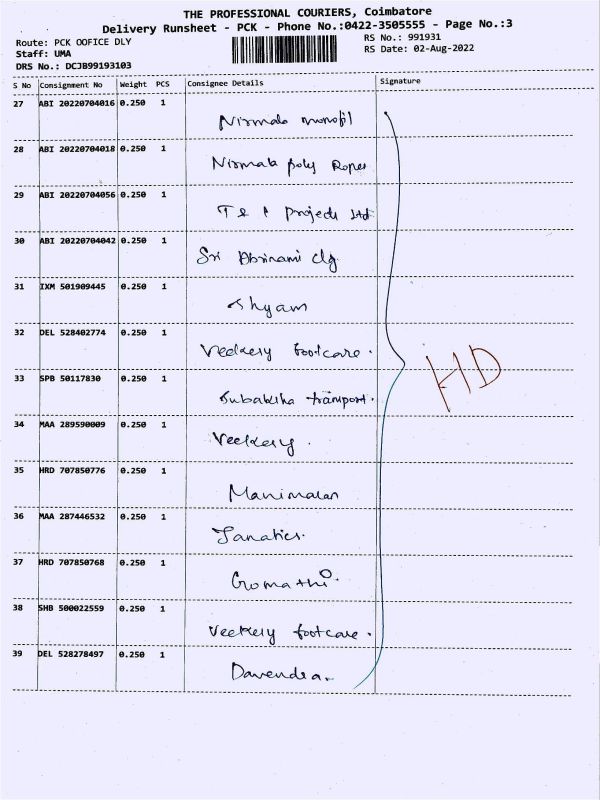 THE PROFESSIONAL COURIERS, Coimbatore
Delivery Runsheet - PCK - Phone No.:0422-3505555 - Page No.:3
Route: PCK OOFICE DLY RS No.: 991931
Staff: UMA RS Date: 02-Aug-2022
DRS No.: DCJB99193103
S No Consignment No Weight PCS Consignee Details Signature
27 ABI 20220704016 0.250 1
Nirmala monofil
28 ABI 20220704018 0.250 1
Nirmala poly Ropes
29 ABI 20220704056 0.250 1
T & I Projects Ltd
30 ABI 20220704042 0.250 1
Sri Abinami clg
31 IXM 501909445 0.250 1
Shyam
32 DEL 528402774 0.250 1
Veekery footcare.
HD
33 SPB 50117830 0.250 1
transport.
34 MAA 289590009 0.250 1
Veekery.
35 HRD 707850776 0.250 1
Manimalan
36 MAA 287446532 0.250 1
Fanatics.
37 HRD 707850768 0.250 1
Gomathi.
38 SHB 500022559 0.250 1
Veekery footcare.
39 DEL 528278497 0.250 1
Davendra.